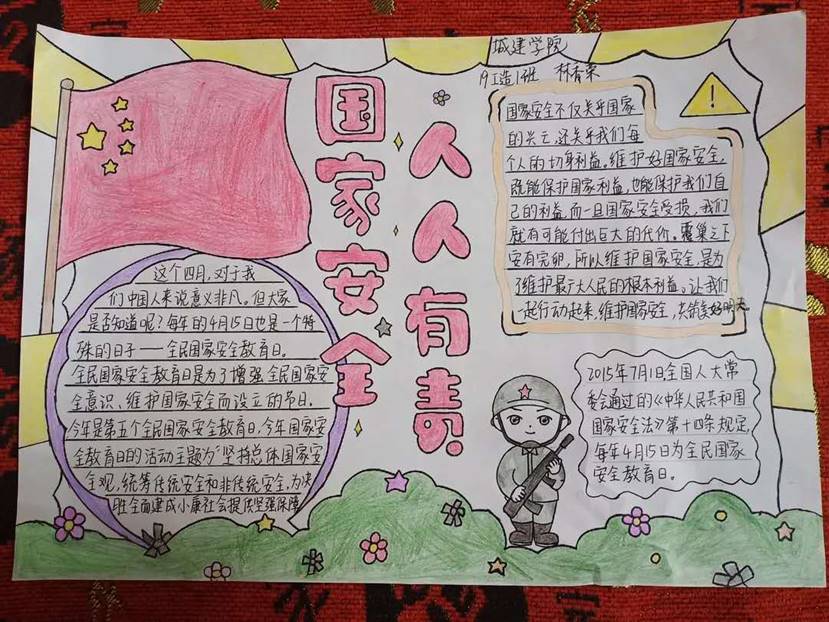 城建学院
19工造1班 林香荣
国家安全
人人有责
国家安全不仅关乎国家
的兴亡,还关乎我们每
个人的切身利益。维护好国家安全,
既能保护国家利益,也能保护我们自
己的利益,而一旦国家安全受损,我们
就有可能付出巨大的代价。覆巢之下
安有完卵,所以维护国家安全,是为
了维护最广大人民的根本利益。让我们
一起行动起来,维护国家安全,共筑美好明天
这个四月,对于我
们中国人来说意义非凡。但大家
是否知道呢?每年的4月15日也是一个特
殊的日子——全民国家安全教育日。
全民国家安全教育日是为了增强全民国家安
全意识、维护国家安全而设立的节日。
今年是第五个全民国家安全教育日。今年国家安
全教育日的活动主题为“坚持总体国家安
全观,统筹传统安全和非传统安全,为决
胜全面建成小康社会提供坚强保障
2015年7月1日全国人大常
委会通过的《中华人民共和国
国家安全法》第十四条规定,
每年4月15日为全民国家
安全教育日。